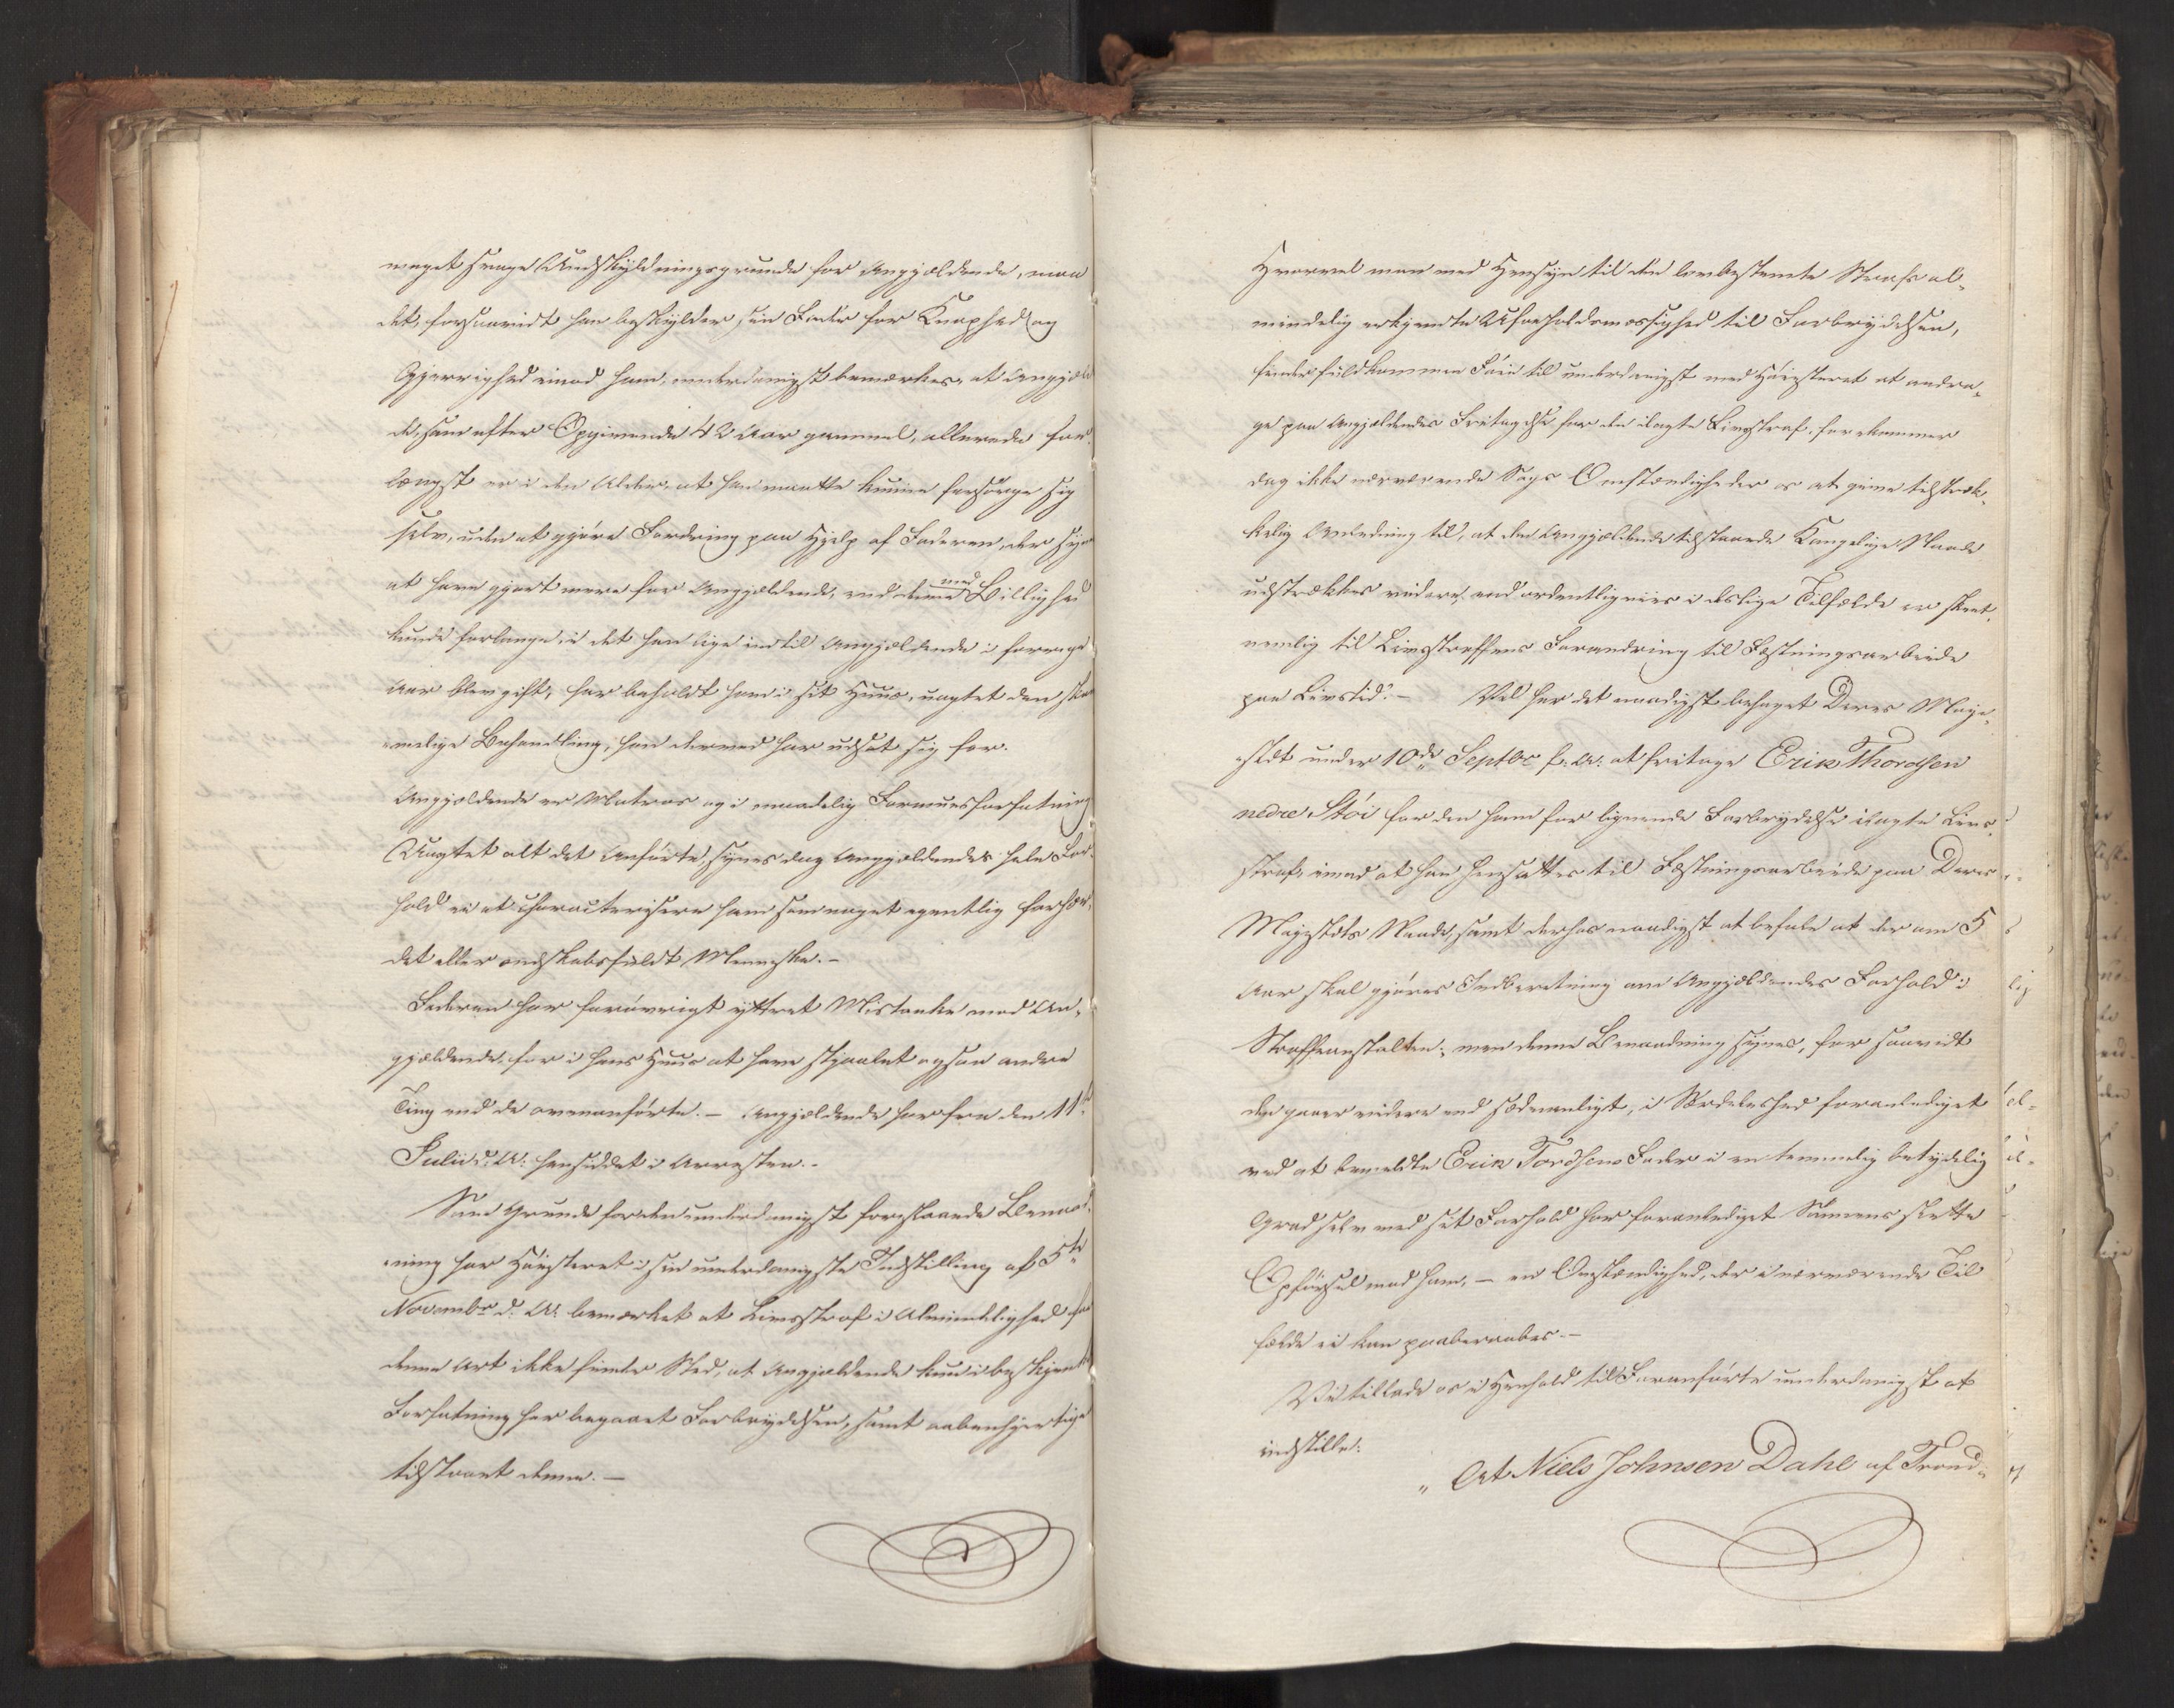 meget svage Undskyldningsgrunde for Angjældende, maa
det, forsaavidt han beskylder sin Fader for Knaphed og
Gjerrighed imod ham, underdanigst bemærkes, at Angjælden
de, som efter Opgivende 42 Aar gammel, allerede for
længst er i den Alder, at han maatte kunne forsørge sig
selv, uden at gjøre Fordring paa Hjelp af Faderen, der synes
at have gjort mere for Angjældende, end denne med Billighed
kunde forlange, i det han lige indtil Angjældende i forrige
Aar blev gift, har beholdt ham i sit Huus, uagtet den skam
melige Behandling, han derved har udsat sig for.
Angjældende er Matros og i maadelig Formuesforfatning
Uagtet alt det Anførte, synes dog Angjældendes hele For
hold ei at characterisere ham som noget egentlig forhær,
det eller ondskabsfuldt Menneske. -
Faderen har forøvrigt yttret Mistanke mod An,
gjældende, for i hans Huus at have stjaalet ogsaa andre
Ting end de ovenanførte. - Angjældende har fra den 11te
Julii d. A. hensiddet i Arresten. -
Som Grunde for den underdanigst foreslaaede Benaad
ning har Høiesteret i sin underdanigste Indstilling af 5te
Novembr d. A. bemærket at Livsstraf i Almindelighed for
denne Art ikke finder Sted, at Angjældende kun i beskjenket
Forfatning har begaaet Forbrydelsen, samt aabenhjertigen
tilstaaet denne. -
Hvorvel man med Hensyn til den lovbestemte Strafs al,
mindelig erkjendte Uforholdsmæssighed til Forbrydelsen,
finder fuldkommen Føie til underdanigst med Høiesteret at andra,
ge paa Angjældendes Fritagelse for den ilagte Livsstraf, forekommer
dog ikke nærværende Sags Omstændigheder os at give tilstræk,
kelig Anledning til, at den Angjældende tilstaaede Kongelige Naade
udstrækkes videre, end ordentligviis i deslige Tilfælde er skeet,
nemlig til Livsstraffens Forandring til Fæstningsarbeide
paa Livstid. - Vel har det naadigst behaget Deres Maje,
stæt under 10de Septbr f. A. at fritage Erik Thordsen
nedre Støi for den ham for lignende Forbrydelse ilagte Livs,
straf, imod at han hensættes til Fæstningsarbeide paa Deres
Majestæts Naade, samt derhos naadigst at befale at der om 5
Aar skal gjøres Indberetning om Angjældendes Forhold i
Straffeanstalten; men denne Benaadning synes, for saavidt
den gaaer videre end sædvanligt, i Særdeleshed foranlediget
ved at bemeldte Erik Tordsens Fader i en temmelig betydelig
Grad selv ved sit Forhold har foranlediget Sønnens slette
Opførsel mod ham, - en Omstændighed, der i nærværende Til
fælde ei kan paaberaabes. -
Vi tillade os i Henhold til Foranførte underdanigst at
indstille:
„ At Niels Johnsen Dahl af Trond,